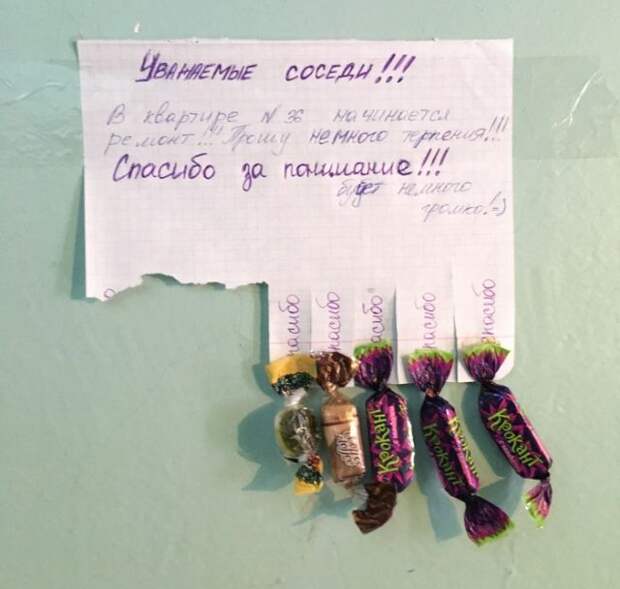 Уважаемые соседи!!!
В квартире N 36 начинается
ремонт!!! Прошу немного терпения!!!
Спасибо за понимание!!!
будет немного
громко!=)
спасибо
спасибо
спасибо
спасибо
спасибо
Крокант
Крокант
Крокант